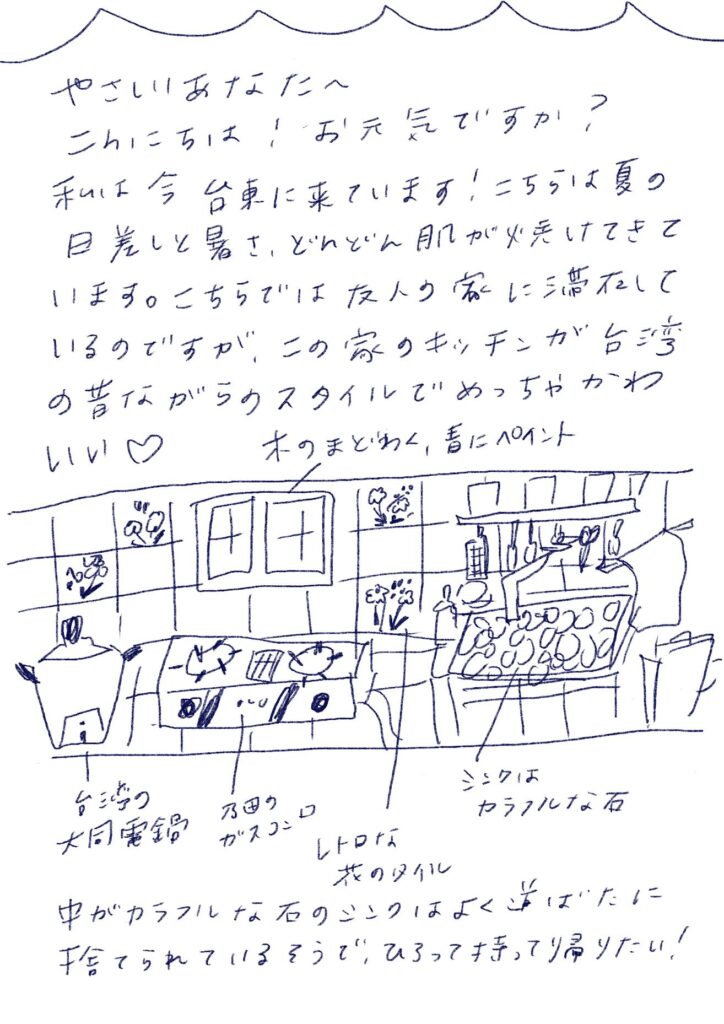 やさしいあなたへ
こんにちは！お元気ですか？
私は今 台東に来ています！こちらは夏の
日差しと暑さ、どんどん肌が焼けてきて
います。こちらでは友人の家に滞在して
いるのですが、この家のキッチンが台湾
の昔ながらのスタイルでめっちゃかわ
いい♡
木のまどわく、青にペイント
台湾の
大同電鍋
ガスコンロ
レトロな
花のタイル
シンクは
カラフルな石
中がカラフルな石のシンクはよく道ばたに
捨てられているそうで、ひろって持って帰りたい！